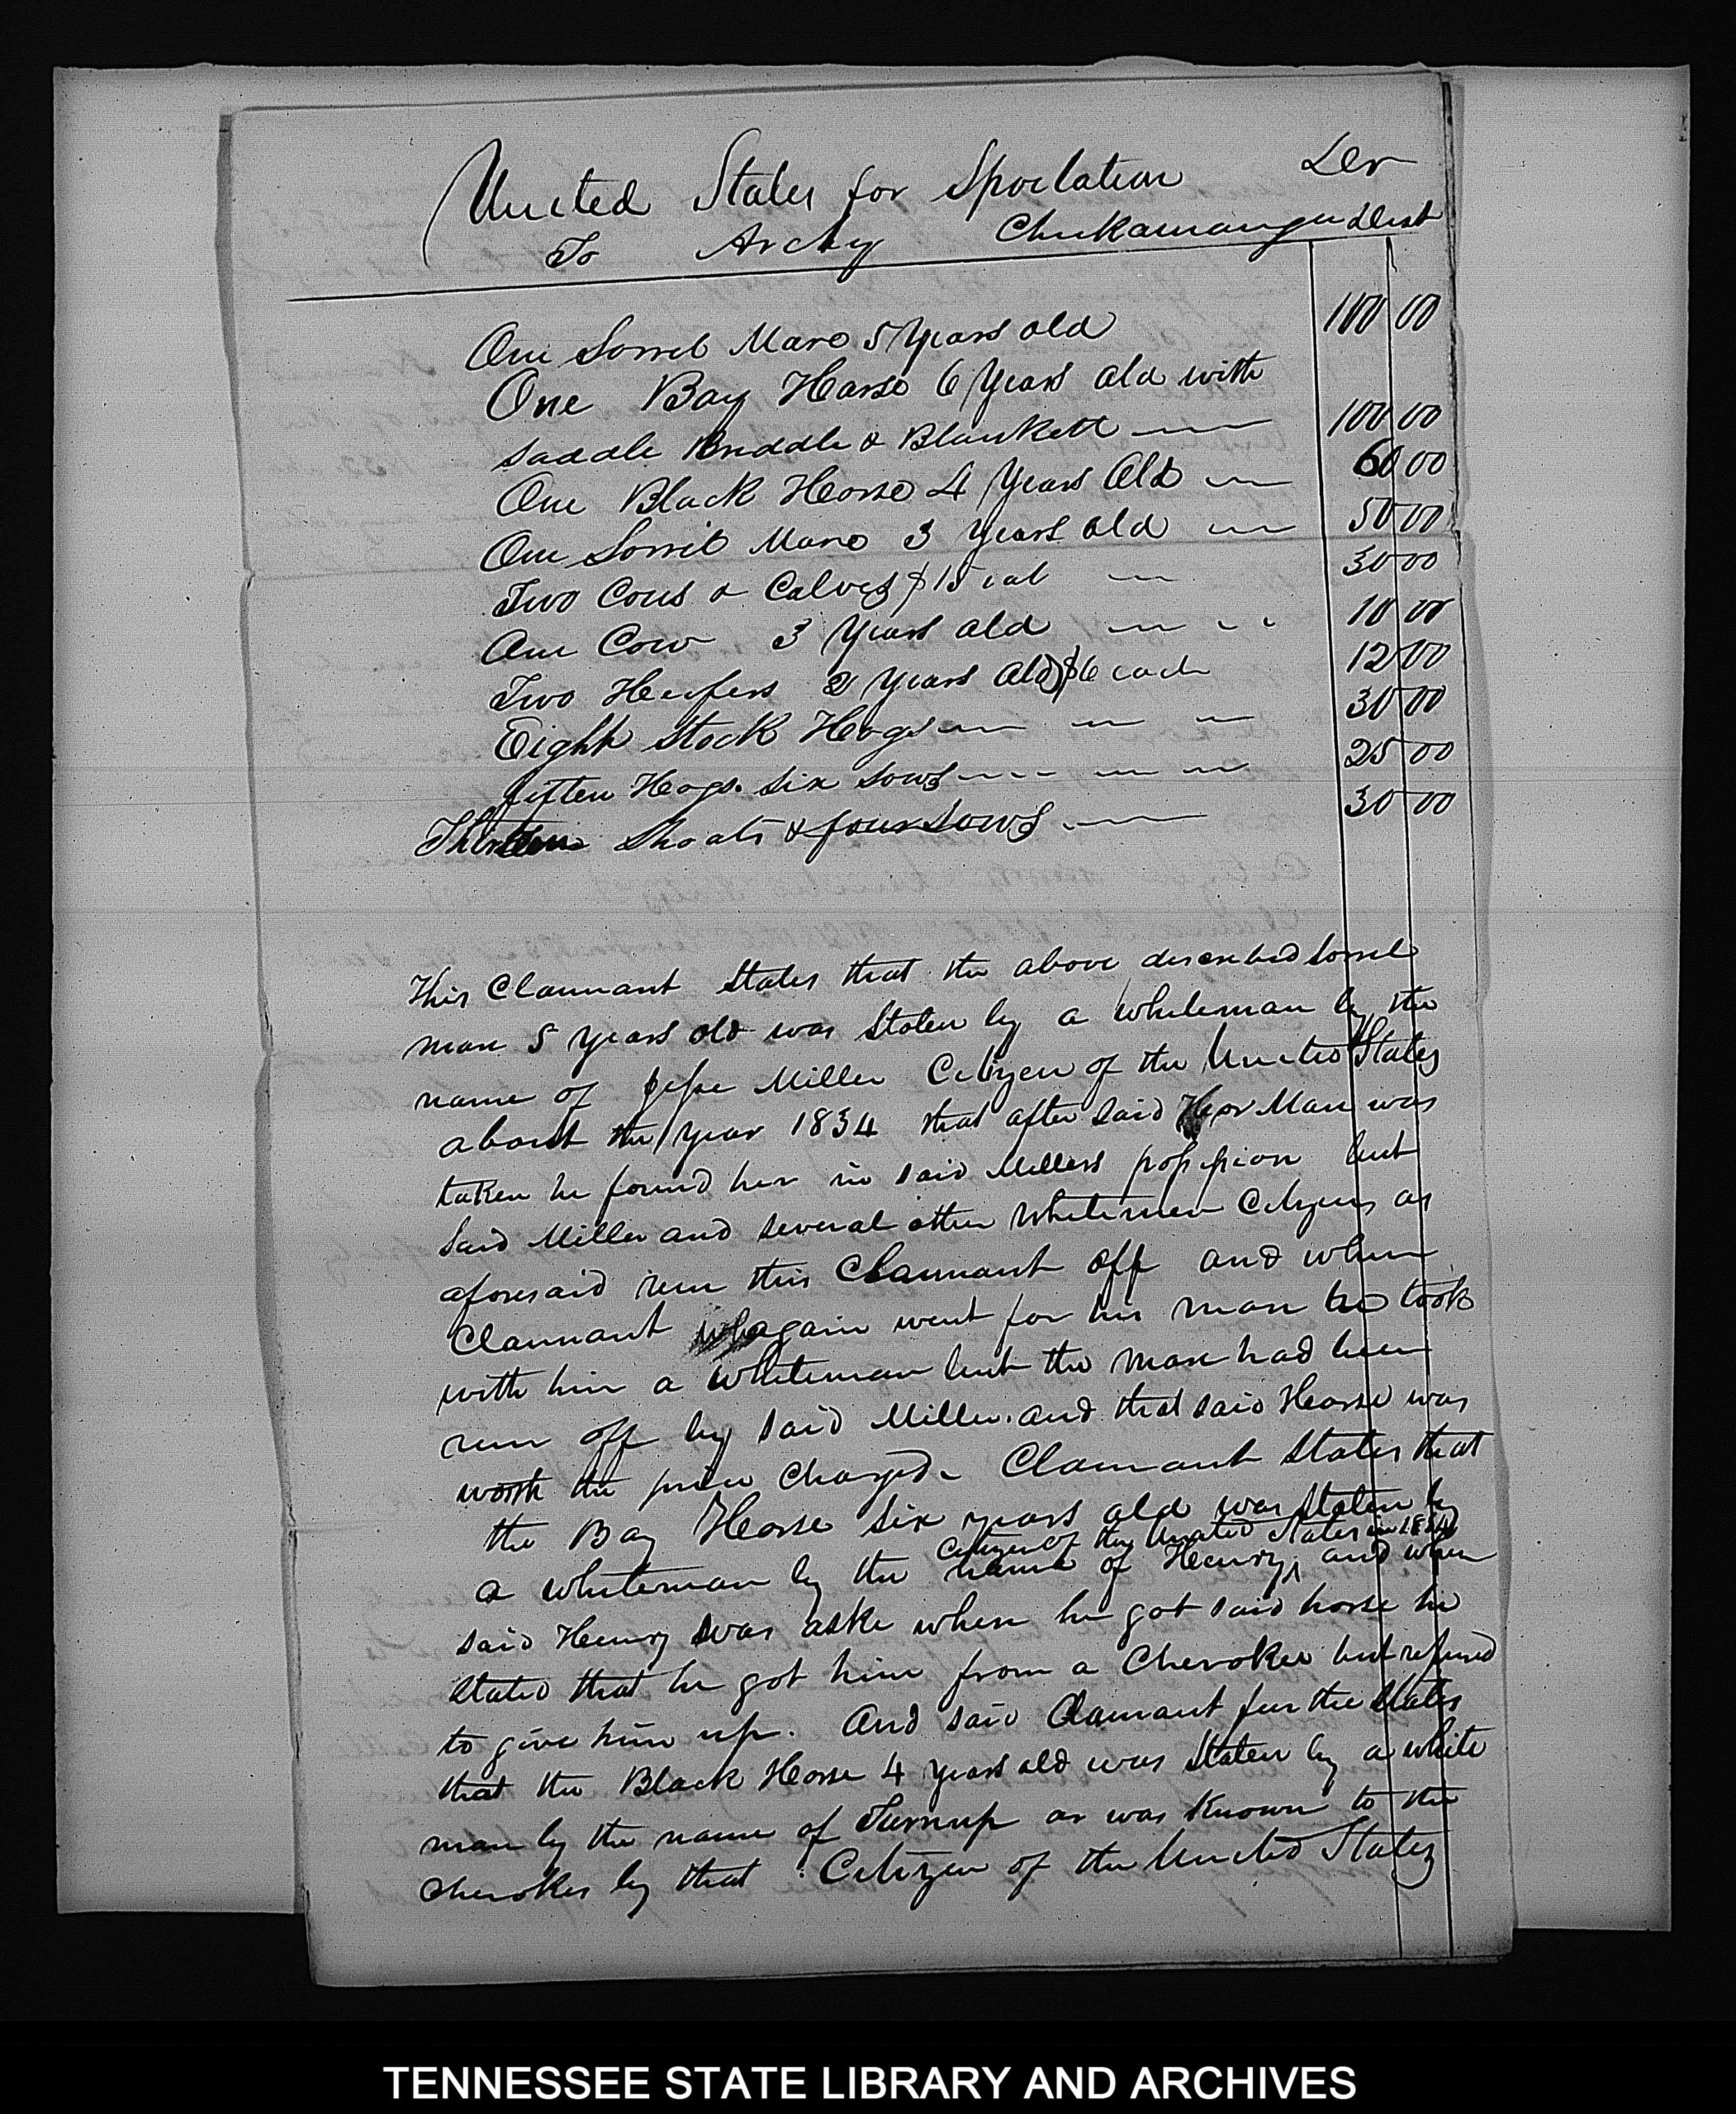 United States for Spoilation Dr
To Archy Chickamauga Dist
One Sorrel Mare 5 Years old 100 00
One Bay Horse 6 Years old with
saddle Briddle & Blankett 100 00
One Black Horse 4 Years Old 60 00
One Sorrel Mare 3 years old 50 00
Two Cows & Calves $15 30 00
One Cow 3 Years old 10 00
Two Heifers 2 Years Old $6 each 12 00
Eight Stock Hogs 30 00
fiften Hogs. six sows 25 00
Shoats & four Sows 30 00
This Claimant States that the above described Sorrel
mare 5 years old was Stolen by a whiteman by the
name of Jesse Miller Citizen of the United States
about the year 1834 that after said Mare was
taken he found her in said Millers possession but
said Miller and several other Whitemen Citizens as
aforesaid run this Claimant off and when
Claimant again went for his mare he took
with him a Whiteman but the mare had been
run off by said Miller. and that said Horse was
worth the price Charged. Claimant States that
the Bay Horse six years old was stolen by
citizen of the United States in 1834
a whiteman by the name of Henry and when
said Henry was aske where he got said horse he
stated that he got him from a Cherokee but refused
to give him up. And said Claimant further States
that the Black Horse 4 years old was Stolen by a white
man by the name of Turnup or was Known to the
Cherokes by that Citizen of the United States
TENNESSEE STATE LIBRARY AND ARCHIVES